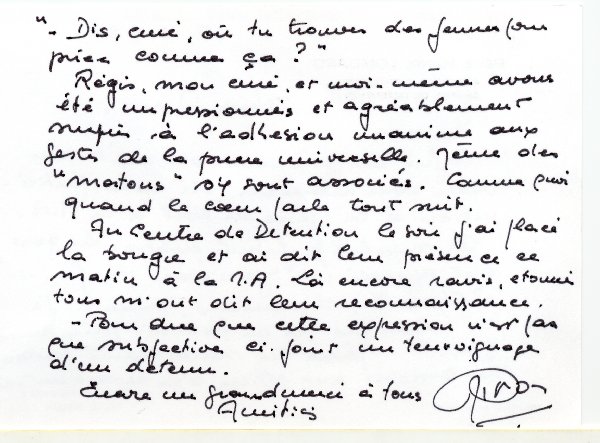 "- Dis, curé, où tu trouves des femmes pour
prier comme ça ?"
Régis, mon curé, et moi-même avons
été impressionnés et agréablement
surpris à l'adhésion unanime aux
gestes de la prière universelle. Même des
"matons" s'y sont associés. Comme quoi
quand le cœur parle tout suit.
Au Centre de Détention le soir j'ai placé
la bougie et ai dit leur présence ce
matin à la M.A. Là encore ravis, étonnés
tous m'ont dit leur reconnaissance.
- Pour dire que cette expression n'est pas
que subjective ci-joint un témoignage
d'un détenu.
Encore un grand merci à tous
Amitiés